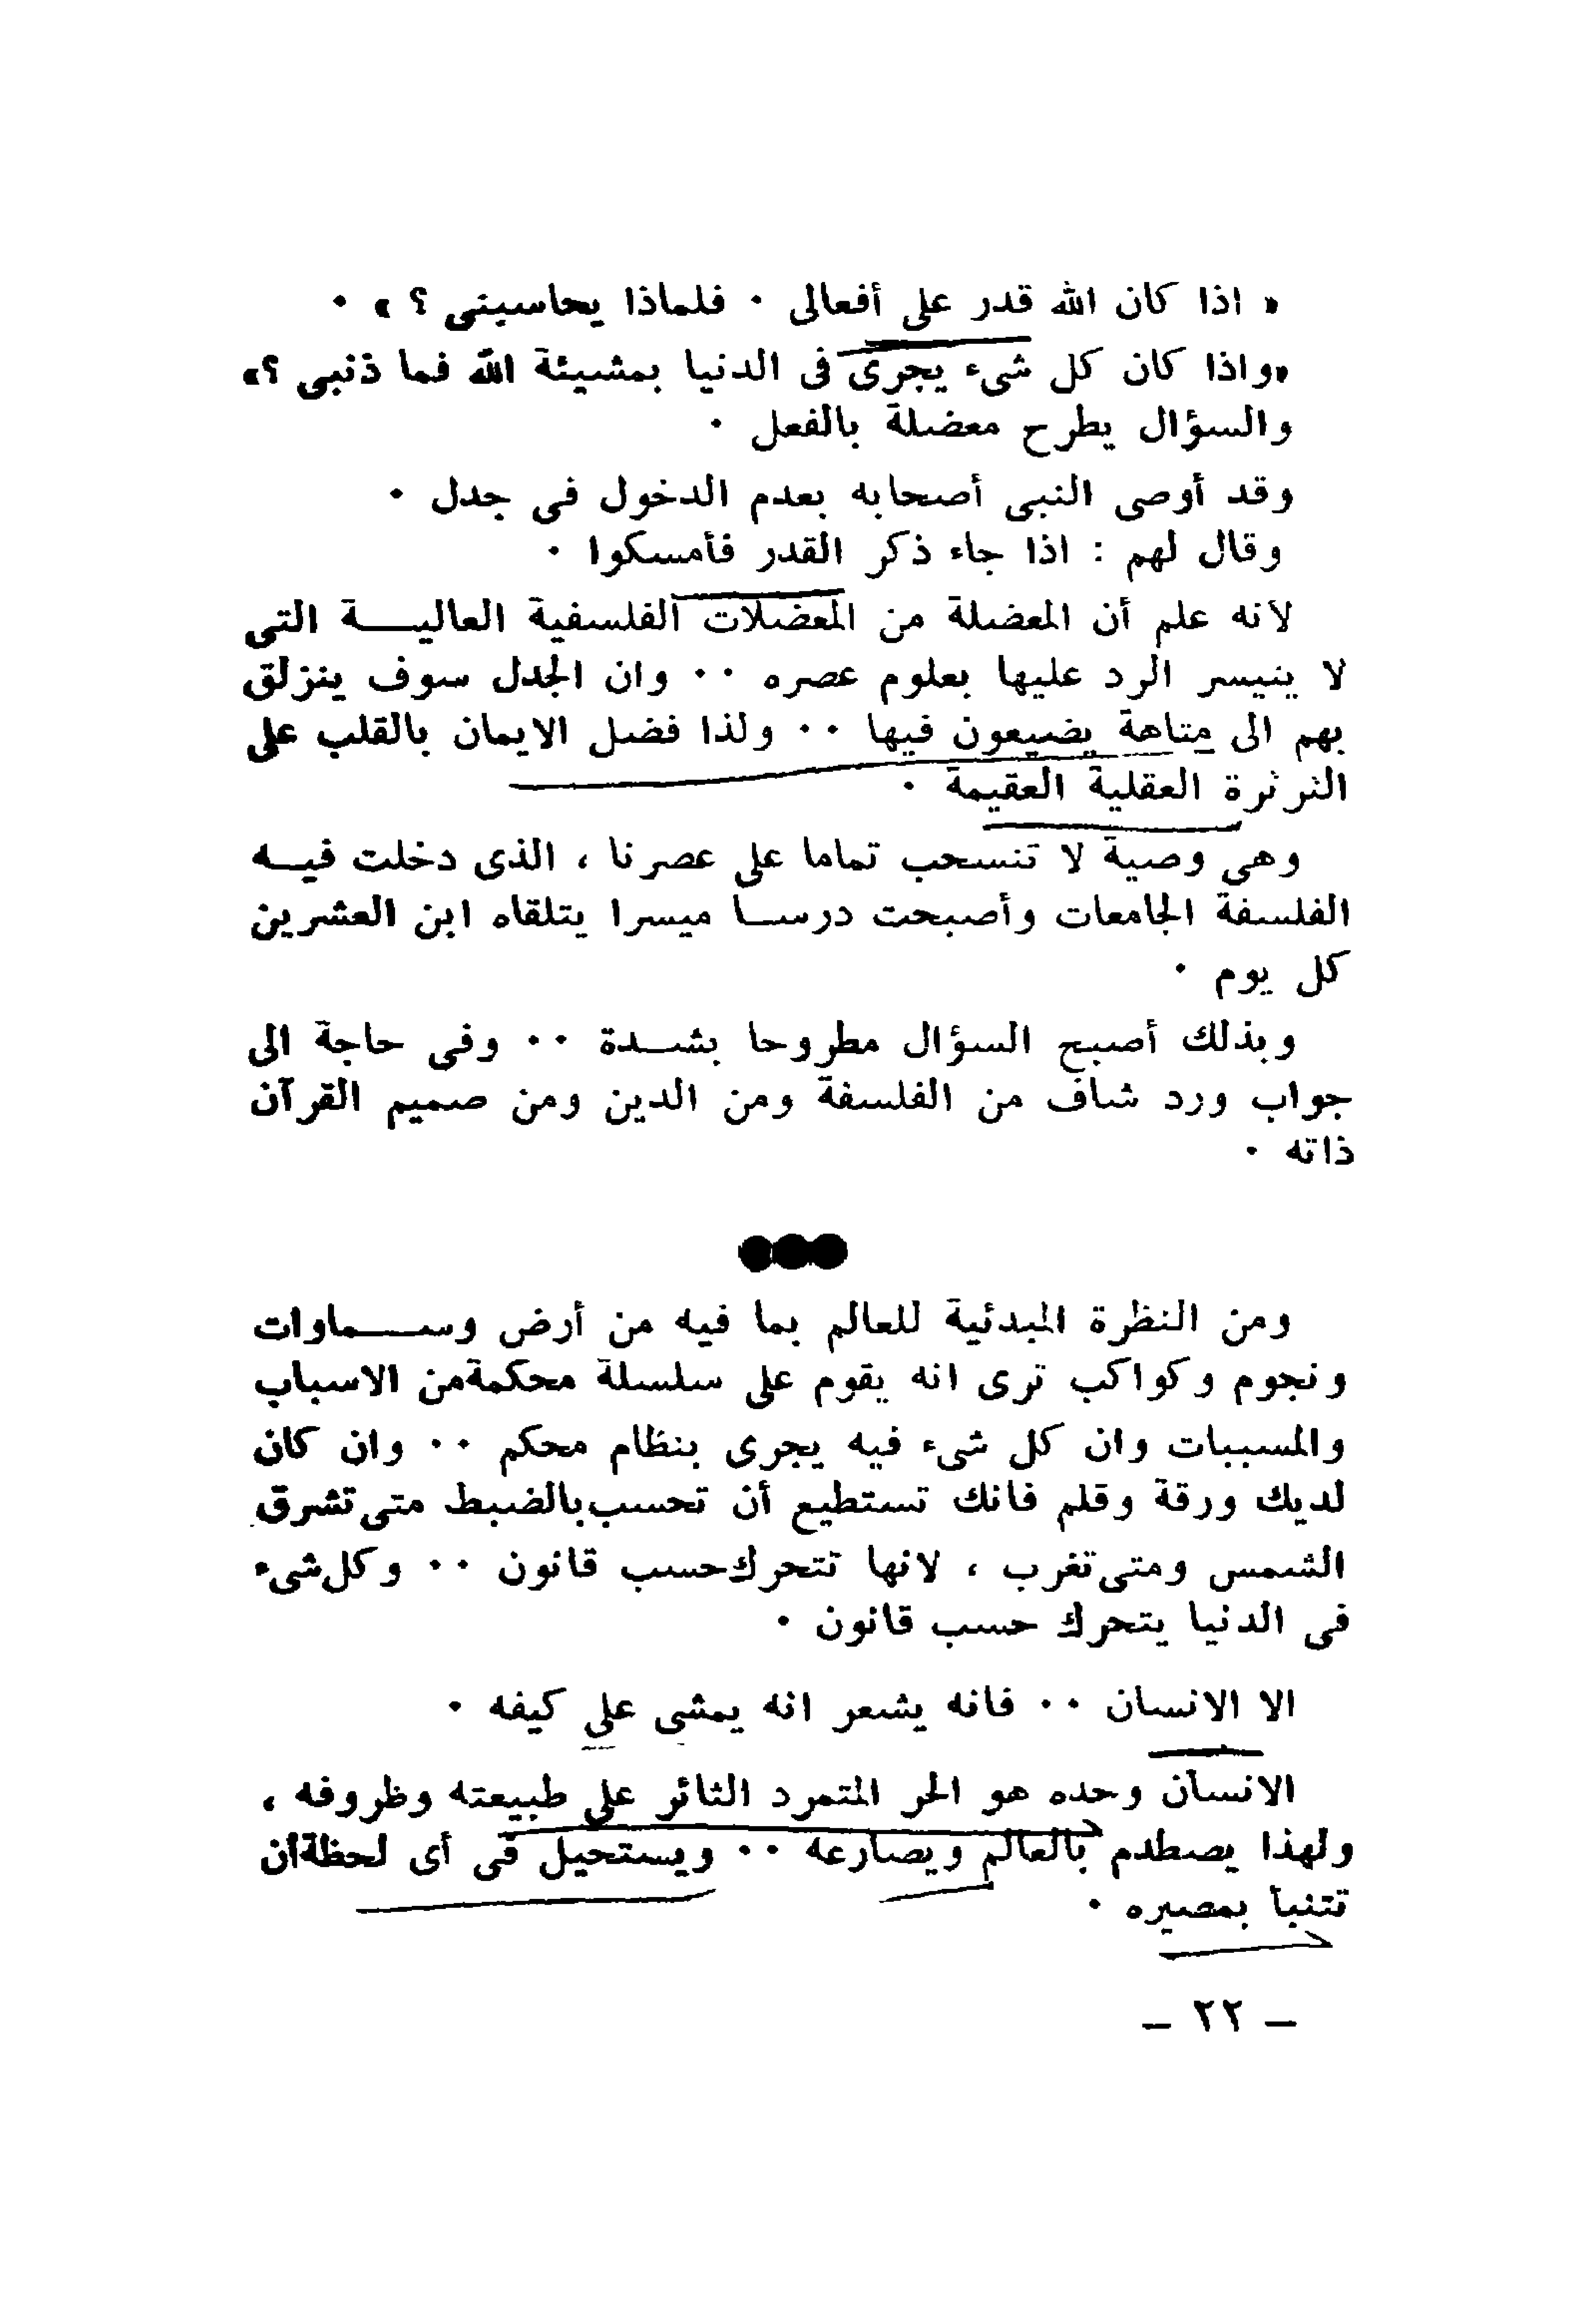 « اذا كان الله قدر على أفعالى . فلماذا يحاسبنى ؟ » .
«واذا كان كل شىء يجرى فى الدنيا بمشيئة الله فما ذنبى ؟»
والسؤال يطرح معضلة بالفعل .
وقد أوصى النبى أصحابه بعدم الدخول فى جدل .
وقال لهم : اذا جاء ذكر القدر فأمسكوا .
لأنه علم أن المعضلة من المعضلات الفلسفية العاليـــة التى
لا يتيسر الرد عليها بعلوم عصره .. وان الجدل سوف ينزلق
بهم الى متاهة يضيعون فيها .. ولذا فضل الايمان بالقلب على
الثرثرة العقلية العقيمة .
وهى وصية لا تنسحب تماما على عصرنا ، الذى دخلت فيـه
الفلسفة الجامعات وأصبحت درسـا ميسرا يتلقاه ابن العشرين
كل يوم .
وبذلك أصبح السؤال مطروحا بشـدة .. وفى حاجة الى
جواب ورد شاف من الفلسفة ومن الدين ومن صميم القرآن
ذاته .
●●●
ومن النظرة المبدئية للعالم بما فيه من أرض وســـماوات
ونجوم وكواكب ترى انه يقوم على سلسلة محكمة من الاسباب
والمسببات وان كل شىء فيه يجرى بنظام محكم .. وان كان
لديك ورقة وقلم فانك تستطيع أن تحسب بالضبط متى تشرق
الشمس ومتى تغرب ، لانها تتحرك حسب قانون .. وكل شىء
فى الدنيا يتحرك حسب قانون .
الا الانسان .. فانه يشعر انه يمشى على كيفه .
الانسان وحده هو الحر المتمرد الثائر على طبيعته وظروفه ،
ولهذا يصطدم بالعالم ويصارعه .. ويستحيل فى أى لحظة ان
تتنبا بمصيره .
– ٢٢ –